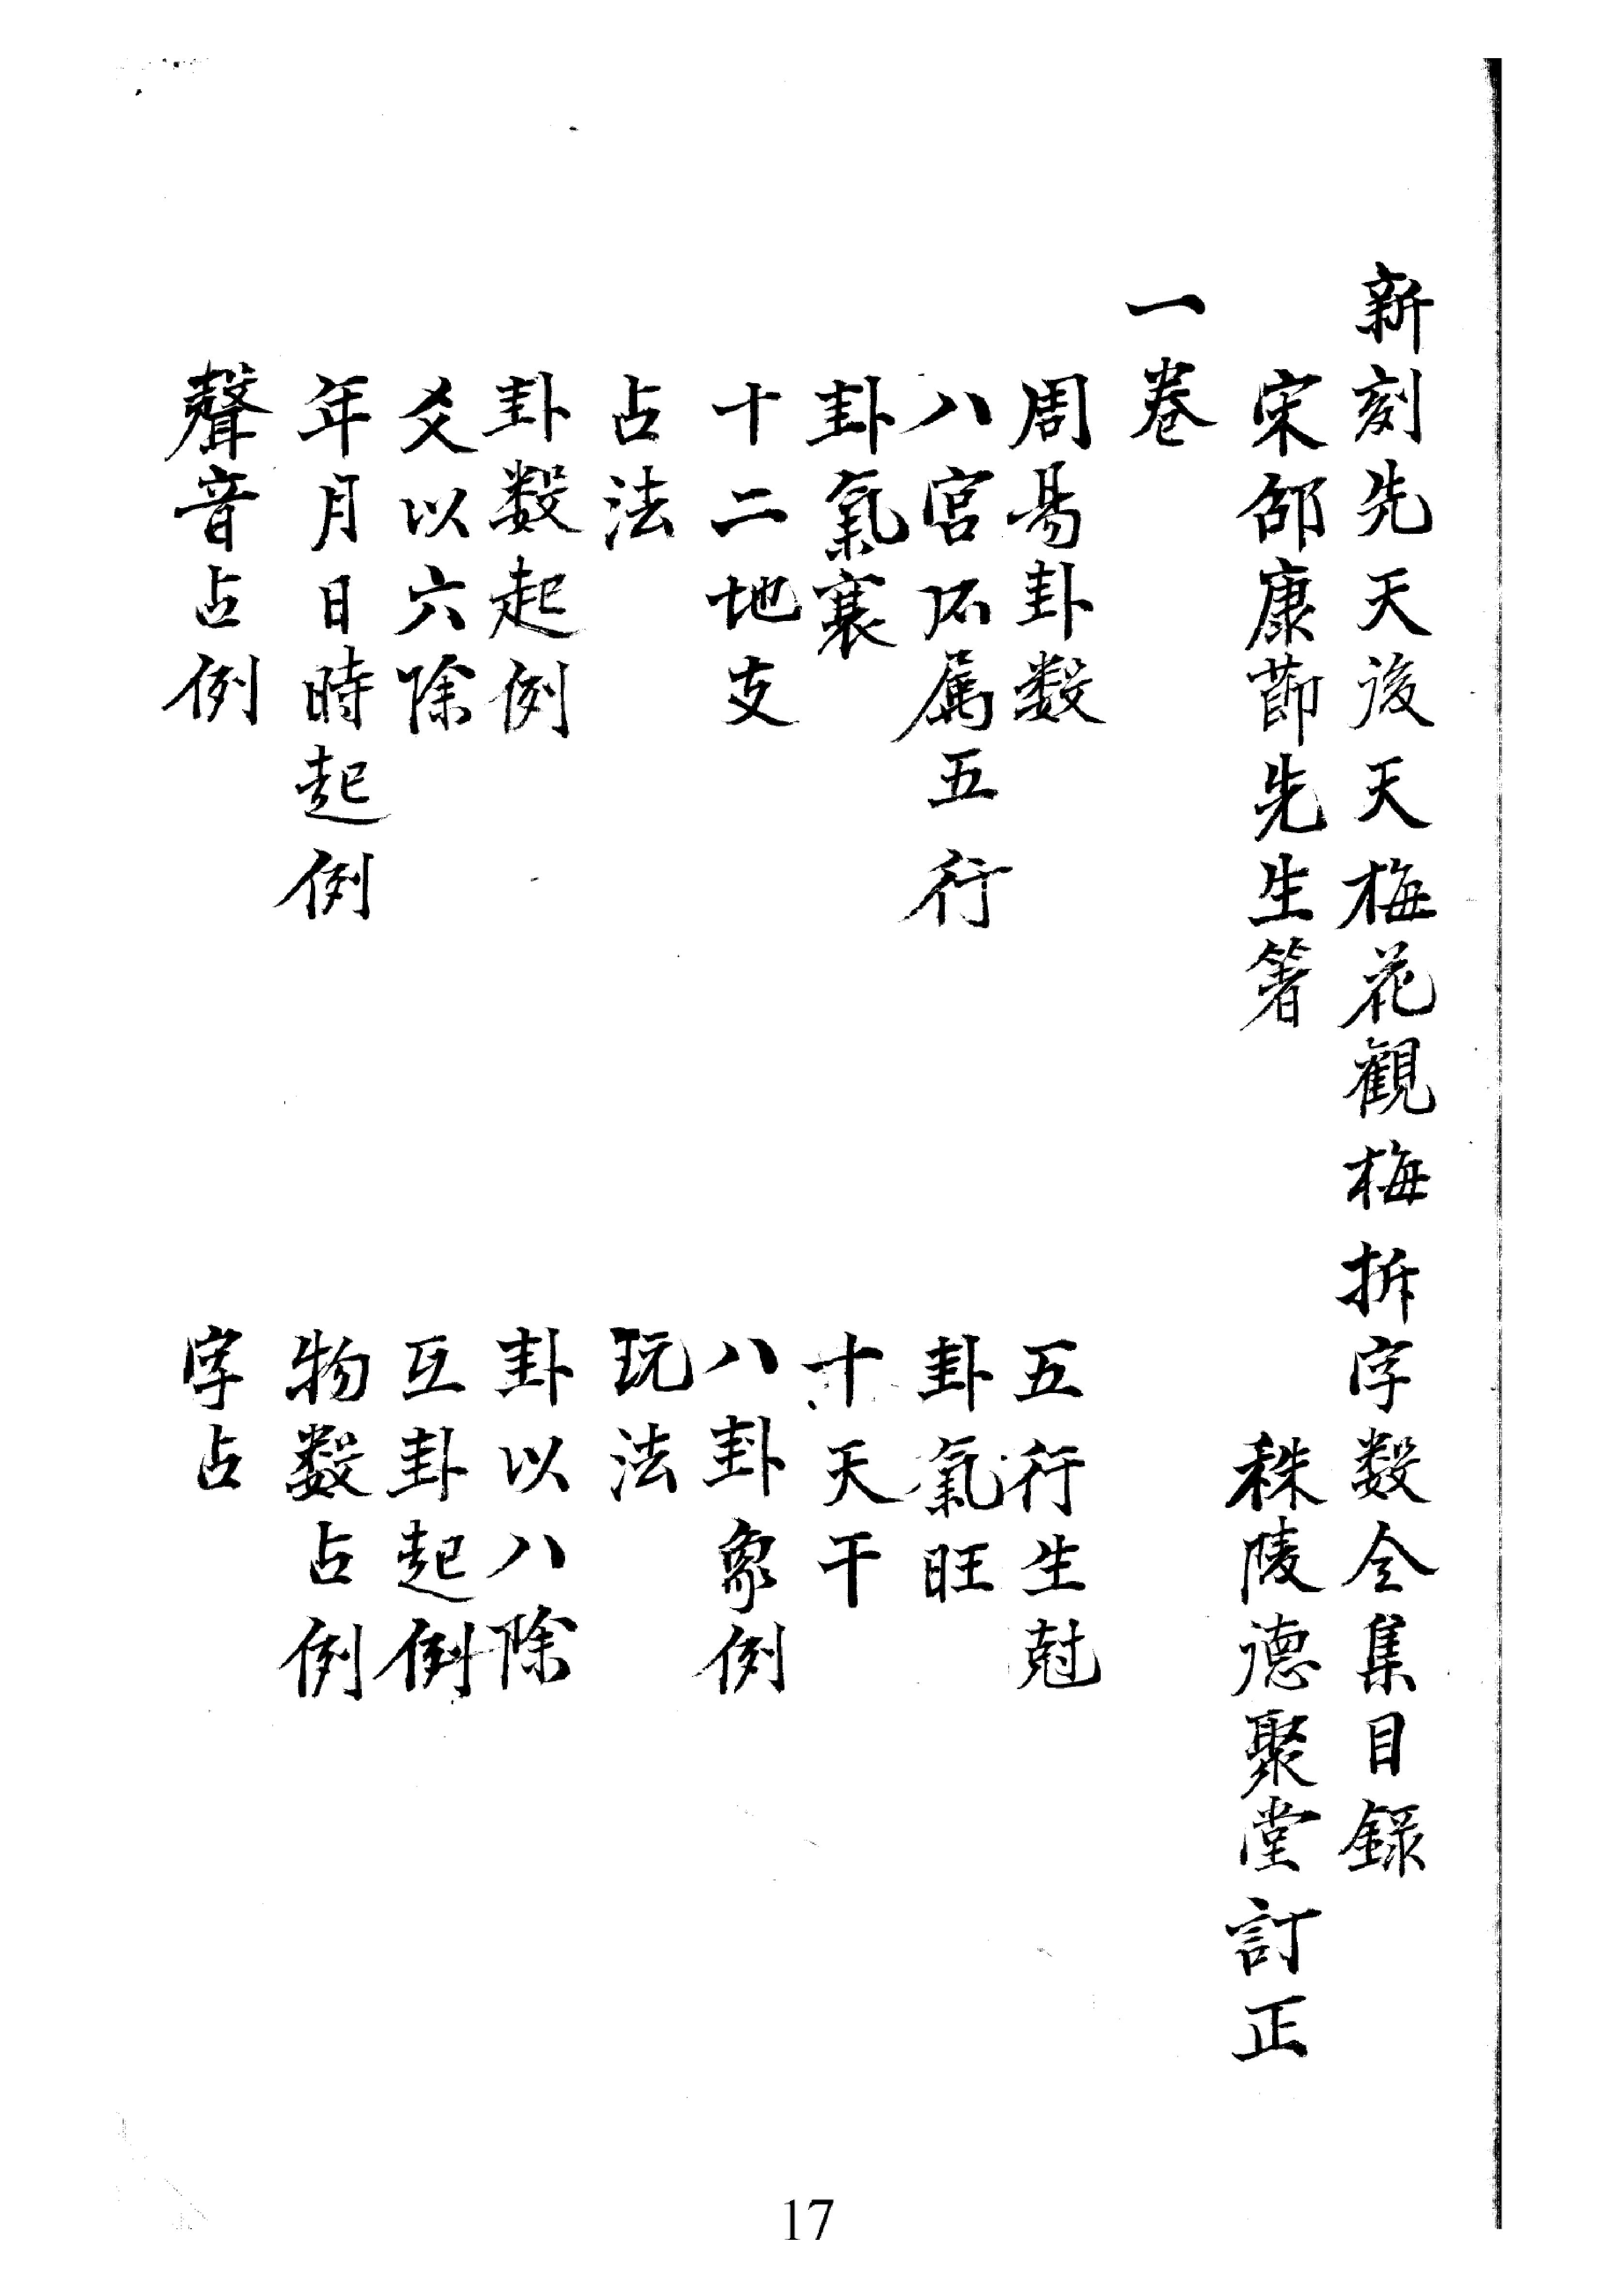 新刻先天後天梅花觀梅拆字数全集目錄
宋邵康節先生著　秣陵德聚堂訂正
一卷
周易卦数　五行生尅
八宫所属五行　卦氣旺
卦氣衰　十天干
十二地支　八卦象例
占法　玩法
卦数起例　卦以八除
爻以六除　互卦起例
年月日時起例　物数占例
聲音占例　字占
17